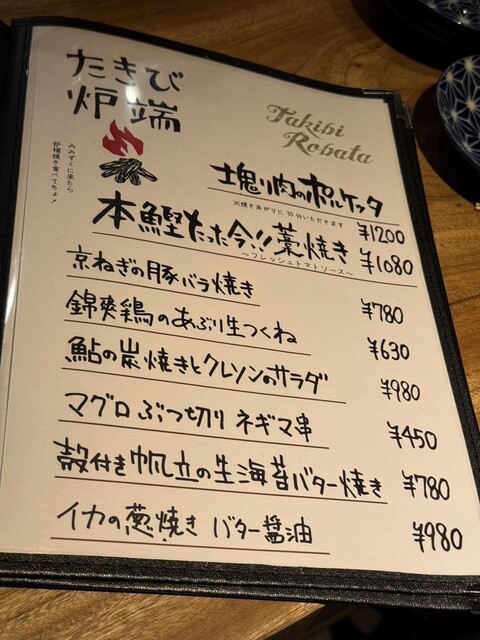 たきび
炉端
みみずくに来たら
炉端焼き食べてちょ！
Takibi
Robata
塊り肉のポルケッタ ¥1200
※焼きあがりに30分いただきます
本鰹たった今!!藁焼き ¥1080
～フレッシュトマトソース～
京ねぎの豚バラ焼き ¥780
錦爽鶏のあぶり生つくね ¥630
鮎の炭焼きとクレソンのサラダ ¥980
マグロ ぶつ切り ネギマ串 ¥450
殻付き帆立の生海苔バター焼き ¥780
イカの葱焼き バター醤油 ¥980